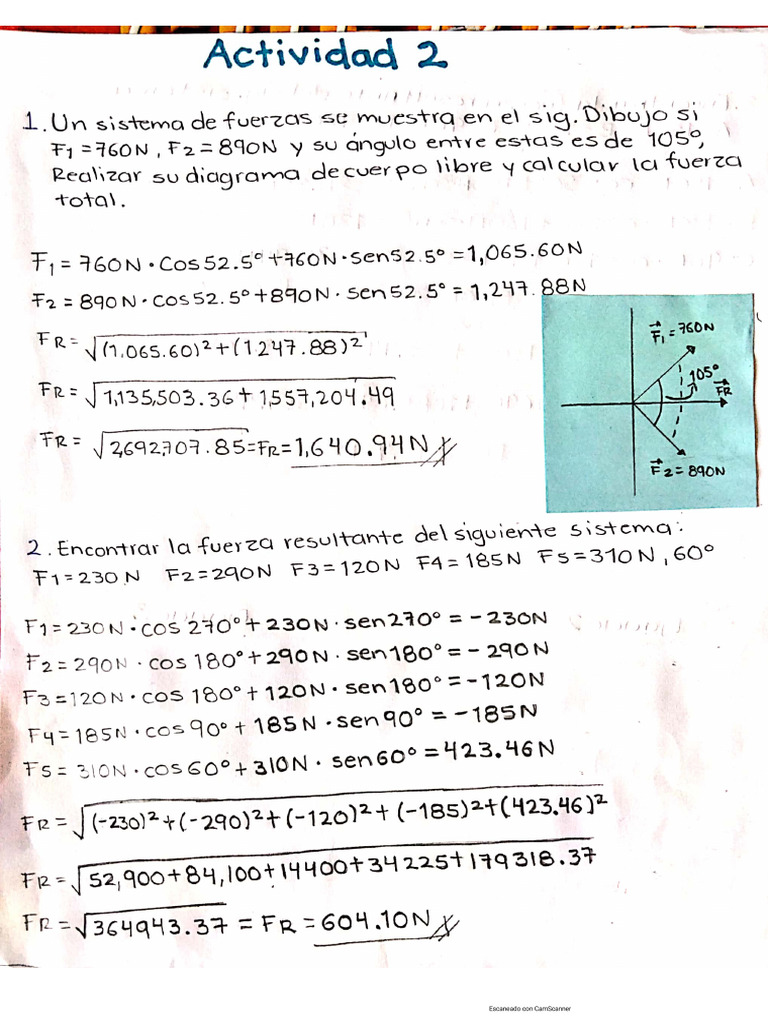 Actividad 2
1. Un sistema de fuerzas se muestra en el sig. Dibujo si
F1 = 760N, F2 = 890N y su ángulo entre estas es de 105º,
Realizar su diagrama de cuerpo libre y calcular la fuerza
total.
F1 = 760N · Cos 52.5º + 760N · Sen 52.5º = 1,065.60N
F2 = 890N · Cos 52.5º + 890N · Sen 52.5º = 1,247.88N
FR = √(1,065.60)² + (1.247.88)²
FR = √1,135,503.36 + 1,557,204.49
FR = √2,692,707.85 = FR = 1,640.94N
F1 = 760N
105º
FR
F2 = 890N
2. Encontrar la fuerza resultante del siguiente sistema:
F1 = 230 N F2 = 290N F3 = 120N F4 = 185N F5 = 310N, 60º
F1 = 230N · cos 270º + 230N · sen 270º = - 230N
F2 = 290N · cos 180º + 290N · sen 180º = - 290N
F3 = 120N · cos 180º + 120N · sen 180º = - 120N
F4 = 185N · cos 90º + 185N · sen 90º = - 185N
F5 = 310N · cos 60º + 310N · sen 60º = 423.46N
FR = √(-230)² + (-290)² + (-120)² + (-185)² + (423.46)²
FR = √52,900 + 84,100 + 14400 + 34225 + 179318.37
FR = √364943.37 = FR = 604.10N
Escaneado con CamScanner